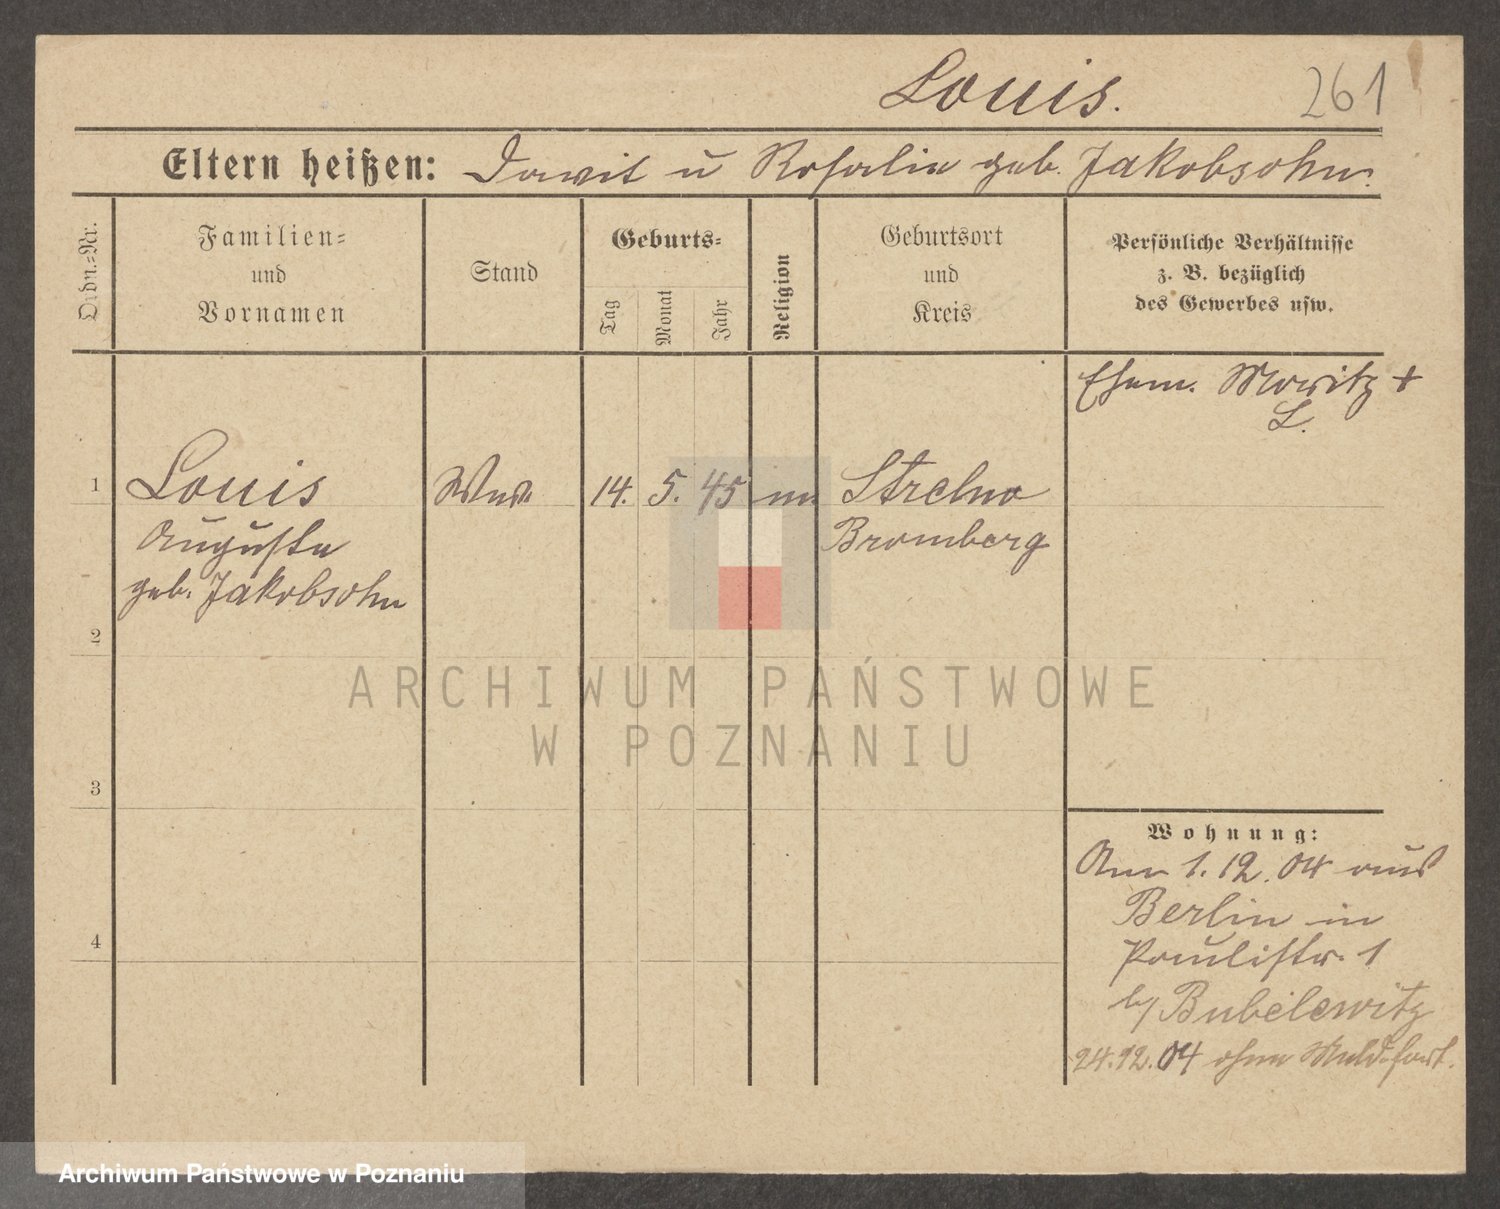 Louis.
261
Eltern heißen: Dawit u Rosalie geb. Jakobsohn.
Ordn.=Nr.
Familien=
und
Vornamen
Stand
Geburts=
Tag
Monat
Jahr
Religion
Geburtsort
und
Kreis
Persönliche Verhältnisse
z. B. bezüglich
des Gewerbes usw.
Ehem. Moritz +
L.
1 Louis Wwe. 14. 5. 45 m. Strelno
Auguste Bromberg
geb. Jakobsohn
2
ARCHIWUM PAŃSTWOWE
W POZNANIU
3
Wohnung:
Am 1.12.04 aus
Berlin in
Paulistr. 1
b/ Bubelewitz
4
24.12.04 ohne Meld. fort.
Archiwum Państwowe w Poznaniu